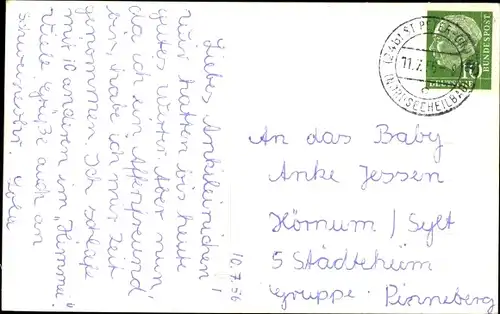 Liebes Ankeleinichen!
Wir hatten bis heute
gutes Wetter. Aber nun,
da ich ein Affenfreund
bin, habe ich mir Zeit
genommen. Ich schlafe
mit 10 anderen im „Himmel“
Viele Grüße auch an
Schwester Lola
10.7.56
An das Baby
Anke Jessen
Hörnum / Sylt
5 Städteheim
Gruppe Pinneberg
(24b) ST. PETER
11.7.56
NORDSEEHEILBAD
c
10
DEUTSCHE
BUNDESPOST